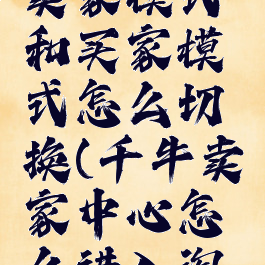 卖家模式
和买家模
式怎么切
换(千牛卖
家中心怎
么进入淘